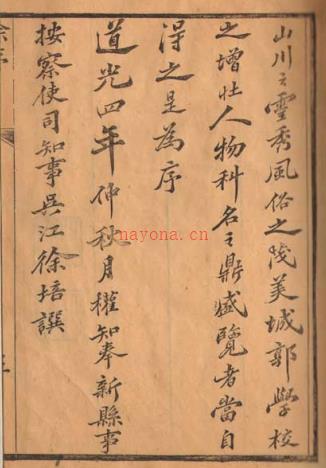 山川之靈秀風俗之淺美城郭學校
之增壯人物科名之鼎盛覽者當自
得之是為序
道光四年仲秋月權知奉新縣事
按察使司知事吳江徐培譔
nayona.cn